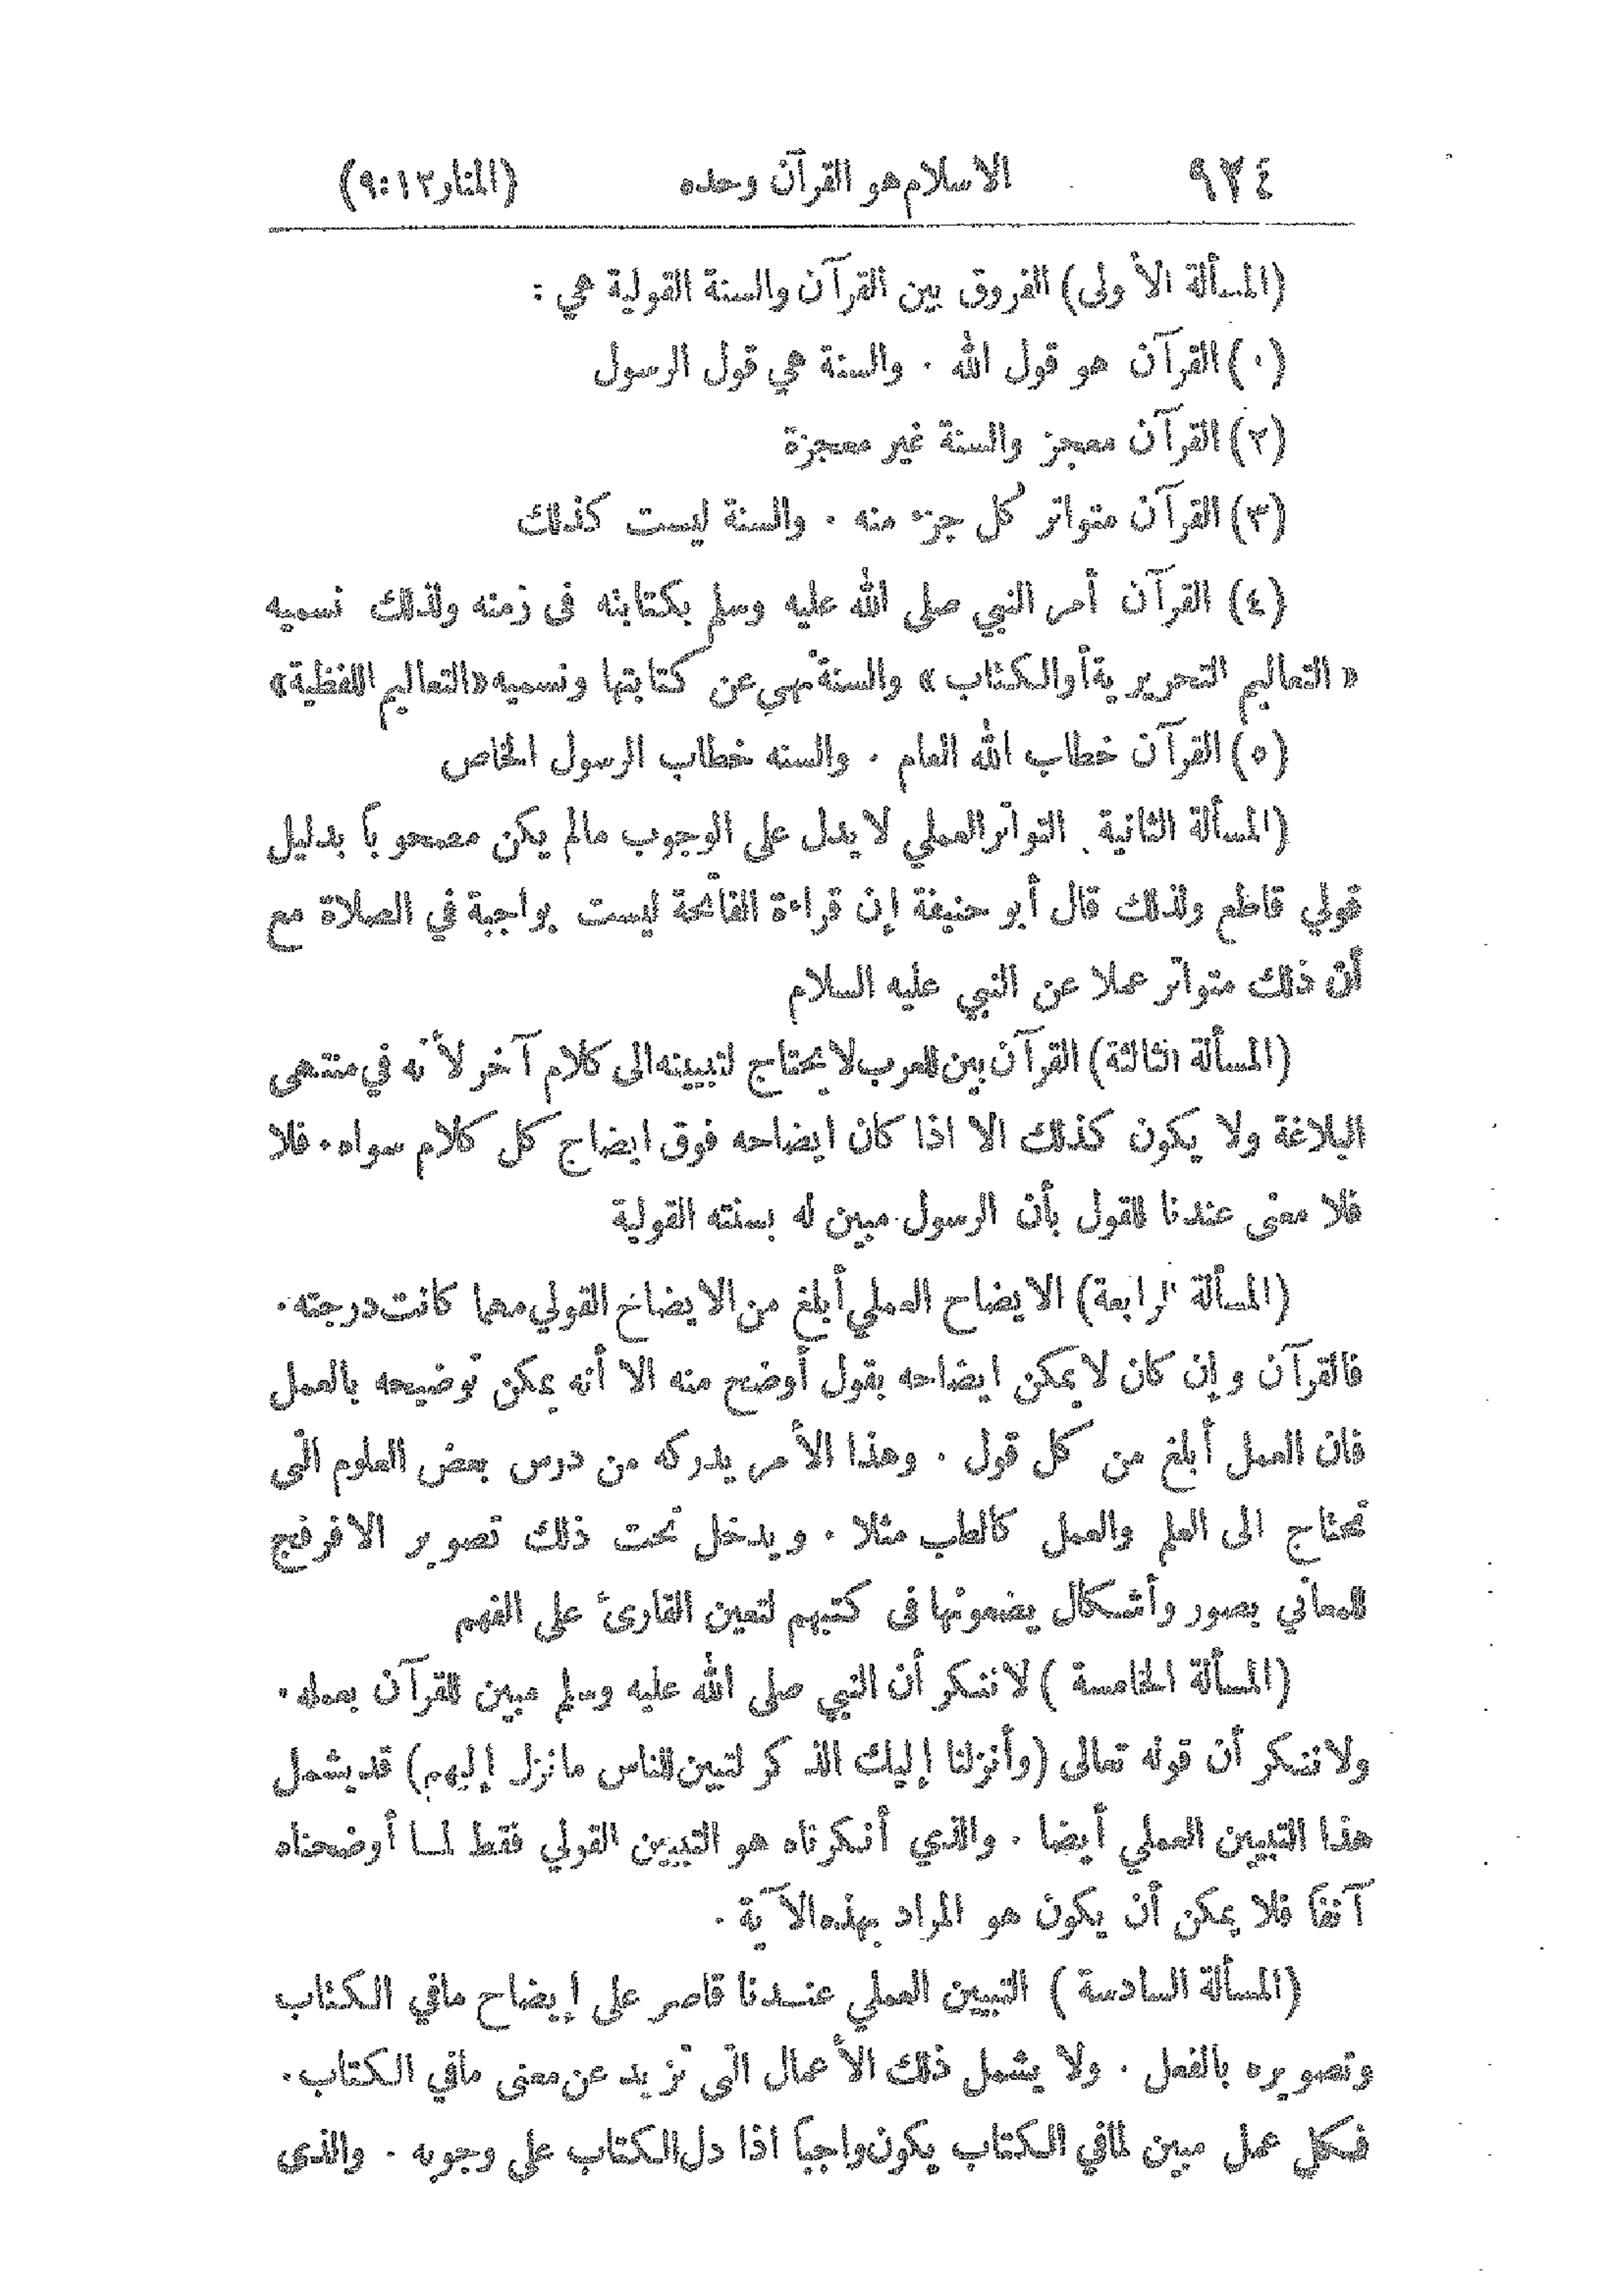 ٩٢٤ الاسلام هو القرآن وحده (المنار ٩:١٢)
(المسألة الأولى) الفروق بين القرآن والسنة القولية هي :
(١) القرآن هو قول الله . والسنة هي قول الرسول
(٢) القرآن معجز والسنة غير معجزة
(٣) القرآن متواتر كل جزء منه . والسنة ليست كذلك
(٤) القرآن أمر النبي صلى الله عليه وسلم بكتابته فى زمنه ولذلك نسميه
« التعاليم التحريرية أو الكتاب » والسنة نهي عن كتابتها ونسميه «التعاليم اللفظية»
(٥) القرآن خطاب الله العام . والسنه خطاب الرسول الخاص
(المسألة الثانية التواتر العملي لا يدل على الوجوب مالم يكن مصحوباً بدليل
قولي قاطع ولذلك قال أبو حنيفة إن قراءة الفاتحة ليست بواجبة في الصلاة مع
أن ذلك متواتر عملا عن النبي عليه السلام
(المسألة الثالثة) القرآن بين للعرب لا يحتاج لتبيينه الى كلام آخر لأنه في منتهى
البلاغة ولا يكون كذلك الا اذا كان ايضاحه فوق ايضاح كل كلام سواه . فلا
فلا معنى عندنا للقول بأن الرسول مبين له بسنته القولية
(المسألة الرابعة) الايضاح العملي أبلغ من الايضاح القولي مهما كانت درجته .
فالقرآن وإن كان لا يمكن ايضاحه بقول أوضح منه الا أنه يمكن توضيحه بالعمل
فان العمل أبلغ من كل قول . وهذا الأمر يدركه من درس بعض العلوم التى
تحتاج الى العلم والعمل كالطب مثلا . ويدخل تحت ذلك تصوير الافرنج
للمعاني بصور وأشكال يضعونها فى كتبهم لتعين القارئ على الفهم
(المسألة الخامسة ) لا ننكر أن النبي صلى الله عليه وسلم مبين للقرآن بعمله .
ولا ننكر أن قوله تعالى (وأنزلنا إليك الذكر لتبين للناس ما نزل إليهم) قد يشمل
هذا التبيين العملي أيضا . والذي أنكرناه هو التبيين القولي فقط لما أوضحناه
آنفاً فلا يمكن أن يكون هو المراد بهذه الآية .
(المسألة السادسة ) التبيين العملي عندنا قاصر على إيضاح مافي الكتاب
وتصويره بالفعل . ولا يشمل ذلك الأعمال التى تزيد عن معنى مافي الكتاب .
فكل عمل مبين لمافي الكتاب يكون واجباً اذا دل الكتاب على وجوبه . والذى